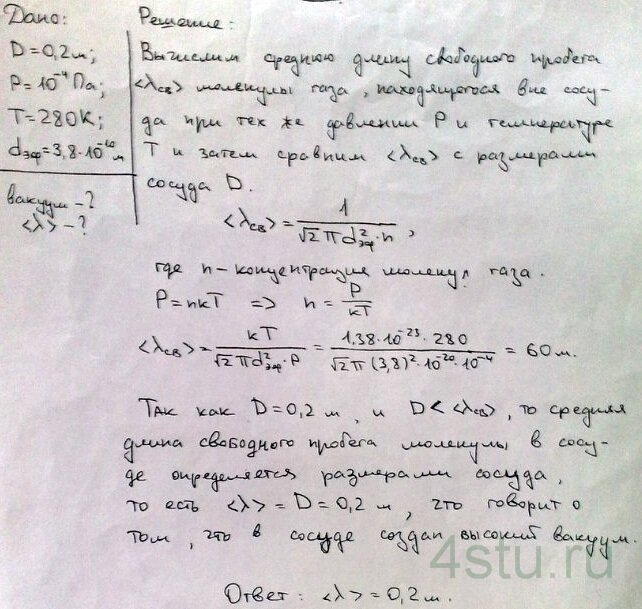 Дано:
D = 0,2 м;
P = 10⁻⁴ Па;
T = 280 К;
dэф = 3,8·10⁻¹⁰ м
вакуум - ?
<λ> - ?
Решение:
Вычислим среднюю длину свободного пробега
<λсв> молекулы газа, находящегося вне сосу-
да при тех же давлении P и температуре
T и затем сравним <λсв> с размерами
сосуда D.
<λсв> = 1 / (√2 π d²эф · n),
где n - концентрация молекул газа.
P = nkT => n = P / kT
<λсв> = kT / (√2 π d²эф · P) = 1,38·10⁻²³ · 280 / (√2 π (3,8)² · 10⁻²⁰ · 10⁻⁴) = 60 м.
Так как D = 0,2 м, и D < <λсв>, то средняя
длина свободного пробега молекулы в сосу-
де определяется размерами сосуда,
то есть <λ> = D = 0,2 м, что говорит о
том, что в сосуде создан высокий вакуум.
4stu.ru
Ответ: <λ> = 0,2 м.